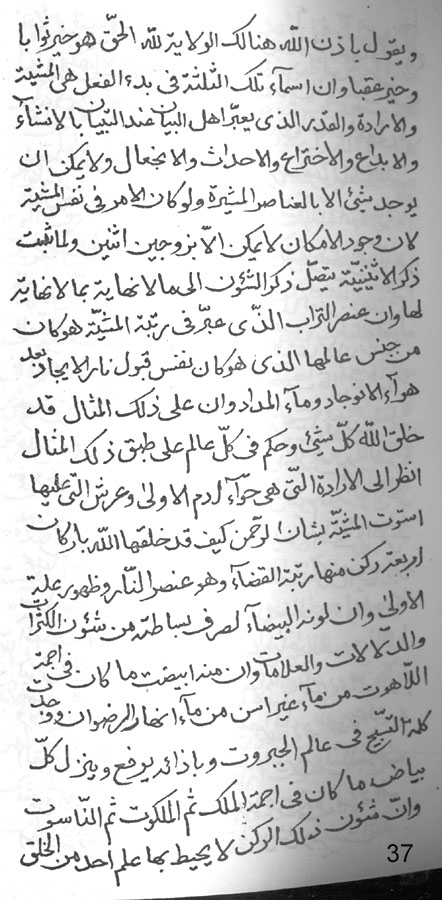 ويقول باذن الله هنالك الولاية لله الحق هو خير ثوابا
وخير عقبا وان اسمآء تلك الثلثة فى بدء الفعل هى المشية
والارادة والقدر الذى يعبر اهل البيان عند التبيان بالانشآء
والابداع والاختراع والاحداث والانجعال ولا يمكن ان
يوجد شيئ الا بالعناصر المشيرة ولو كان الامر فى نفس المشية
لان وجود الامكان لا يمكن الا بزوجين اثنين ولما ثبت
ذكر الاثنينية يتصل ذكر الشئون الى ما لا نهاية بما لا نهاية
لها وان عنصر التراب الذى عبر فى رتبة المشية هو كان
من جنس عالمها الذى هو كان نفس قبول نار الايجاد بعد
هوآء الانوجاد ومآء المداد وان على ذلك المثال قد
خلق الله كل شيئ وحكم فى كل عالم على طبق ذلك المثال
انظر الى الارادة التى هى حوآء ادم الاولى وعرش التى عليها
استوت المشية بشان الرحمن كيف قد خلقها الله باركان
اربعة ركن منها رتبة القضآء وهو عنصر النار وظهور علية
الاولى وان لونه البيضآء لصرف بساطته من شئون الكثرات
والدلالات والعلامات وان منه ابيضت ما كان فى اجمة
اللاهوت من مآء غير اسن من مآء انهار الرضوان ووجدت
كلمة التسبيح فى عالم الجبروت وباذائه يرفع وينزل كل
بياض ما كان فى اجمة الملك ثم الملكوت ثم الناسوت
وان شئون ذلك الركن لا يحيط بها علم احد من الخلق
37